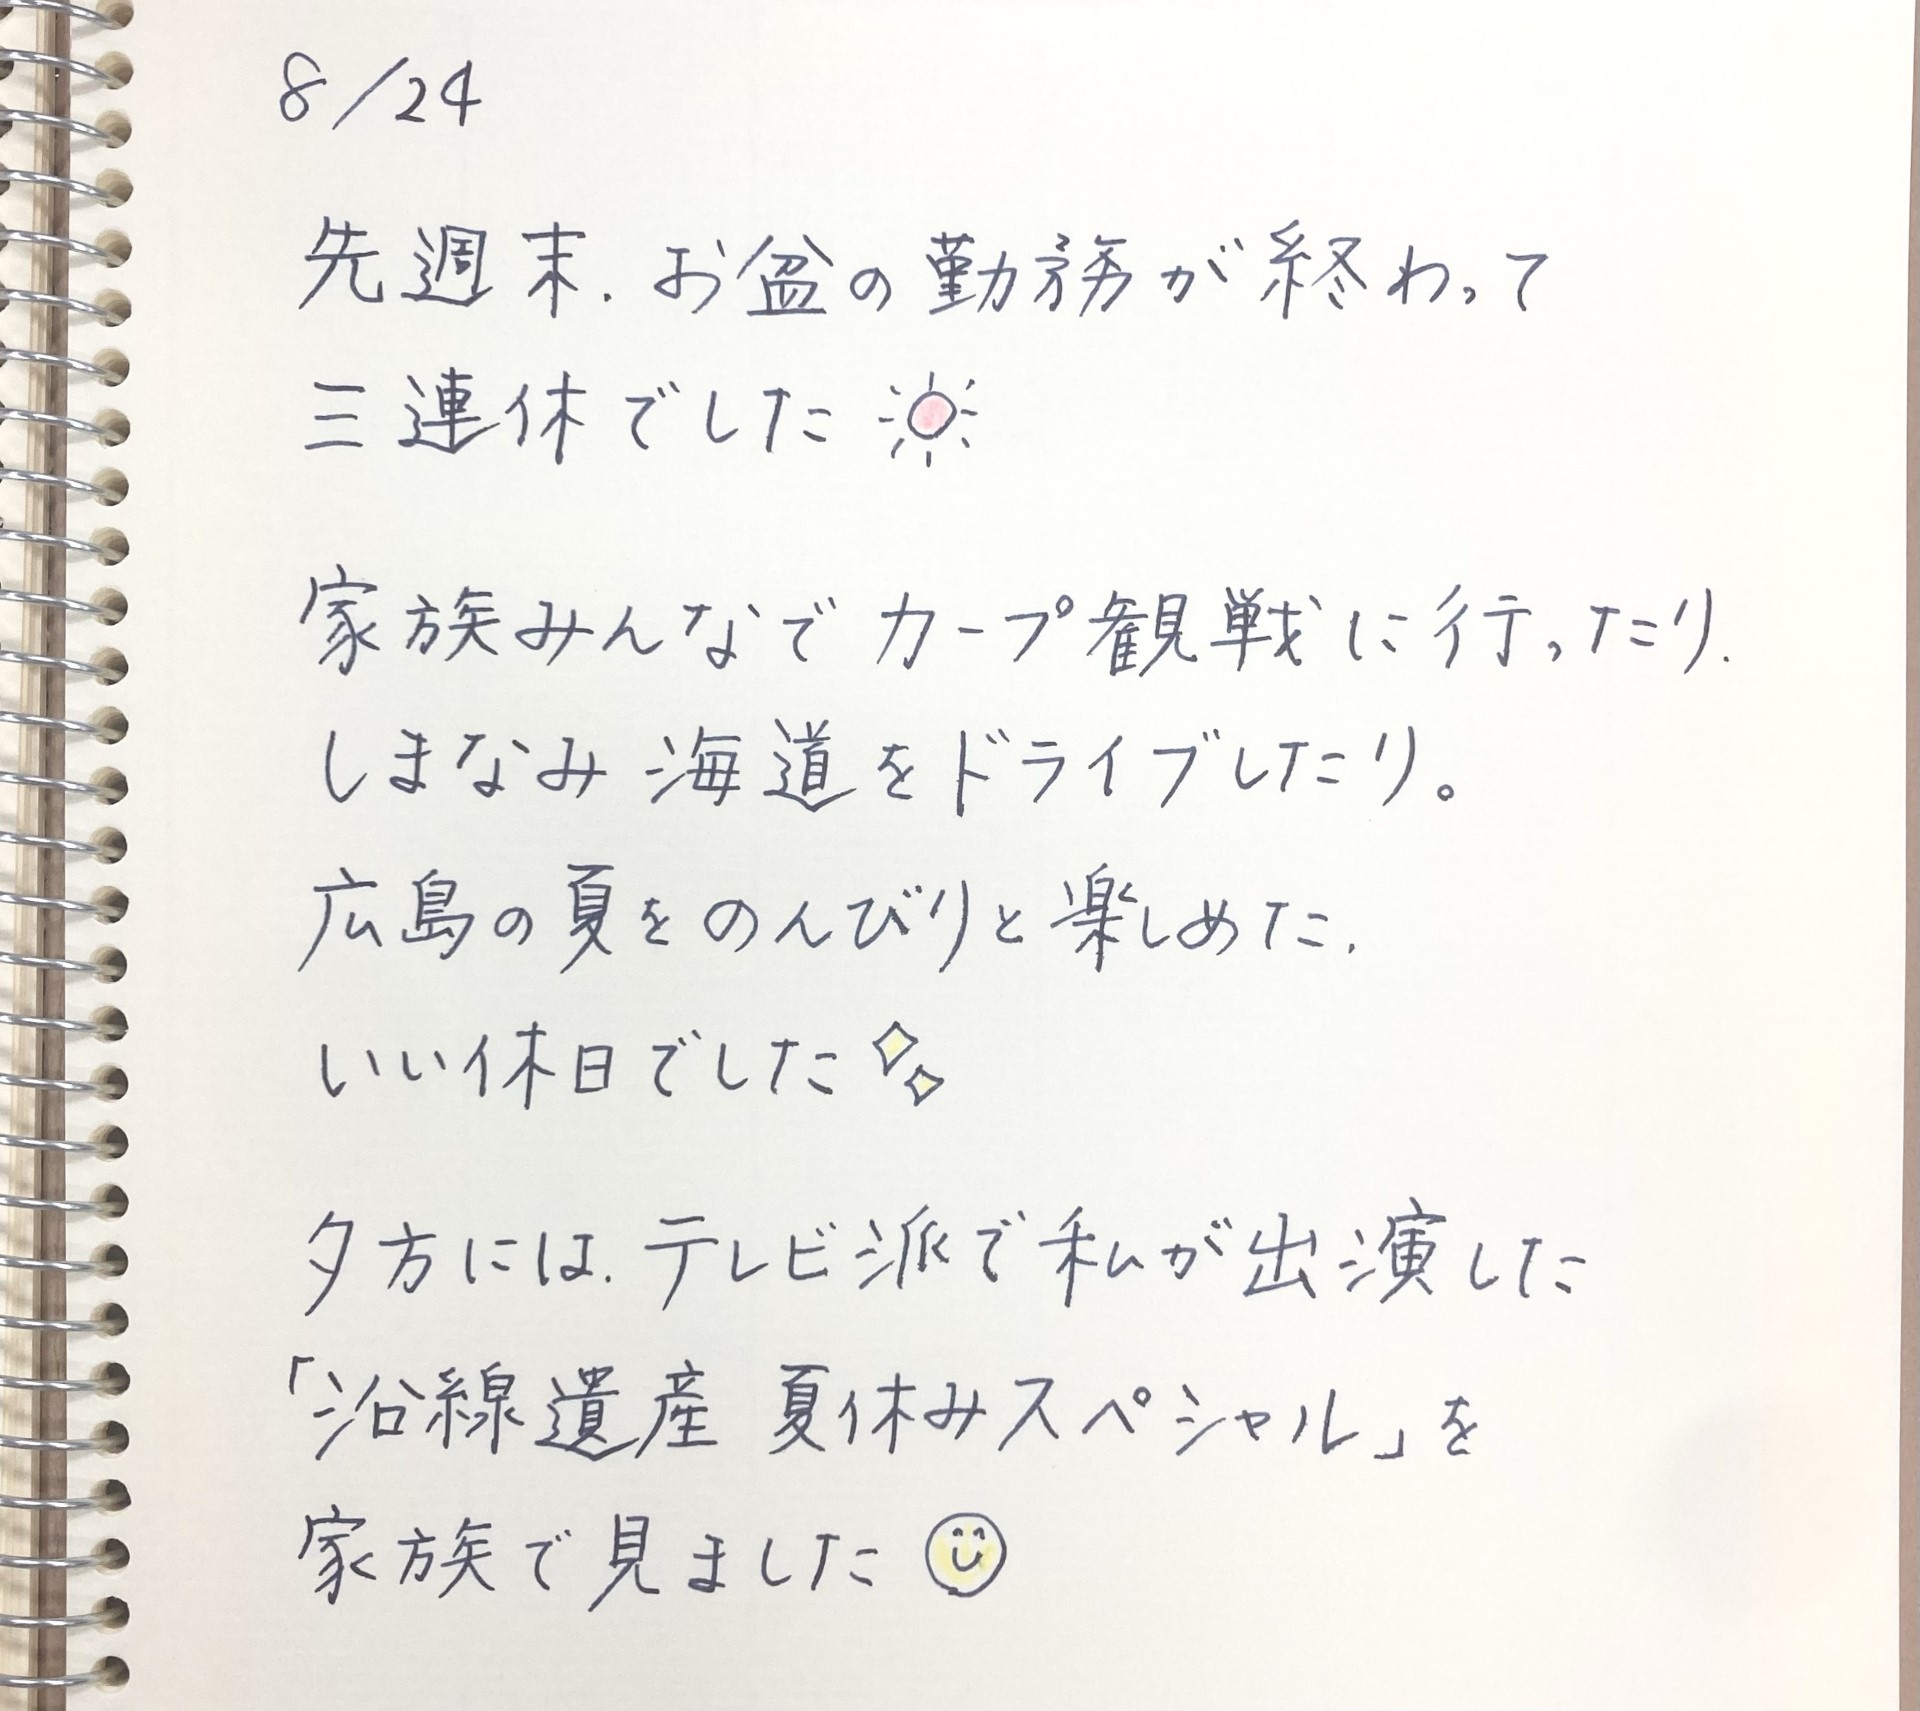 8/24
先週末、お盆の勤務が終わって
三連休でした
家族みんなでカープ観戦に行ったり、
しまなみ海道をドライブしたり。
広島の夏をのんびりと楽しめた、
いい休日でした
夕方には、テレビ派で私が出演した
「沿線遺産 夏休みスペシャル」を
家族で見ました